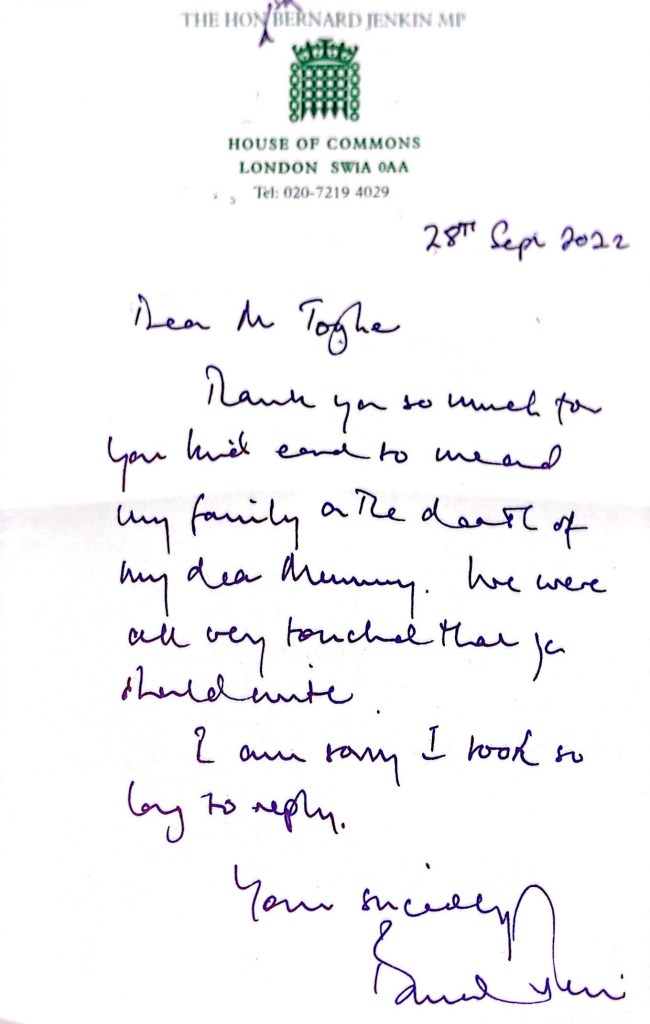 THE HON BERNARD JENKIN MP
HOUSE OF COMMONS
LONDON SW1A 0AA
Tel: 020-7219 4029
28TH Sept 2022
Dear Mr
Thank you so much for
your kind card to me and
my family on the death of
my dear Mummy. We were
all very touched that you
should write.
I am sorry I took so
long to reply.
Yours sincerely
Bernard Jenkin